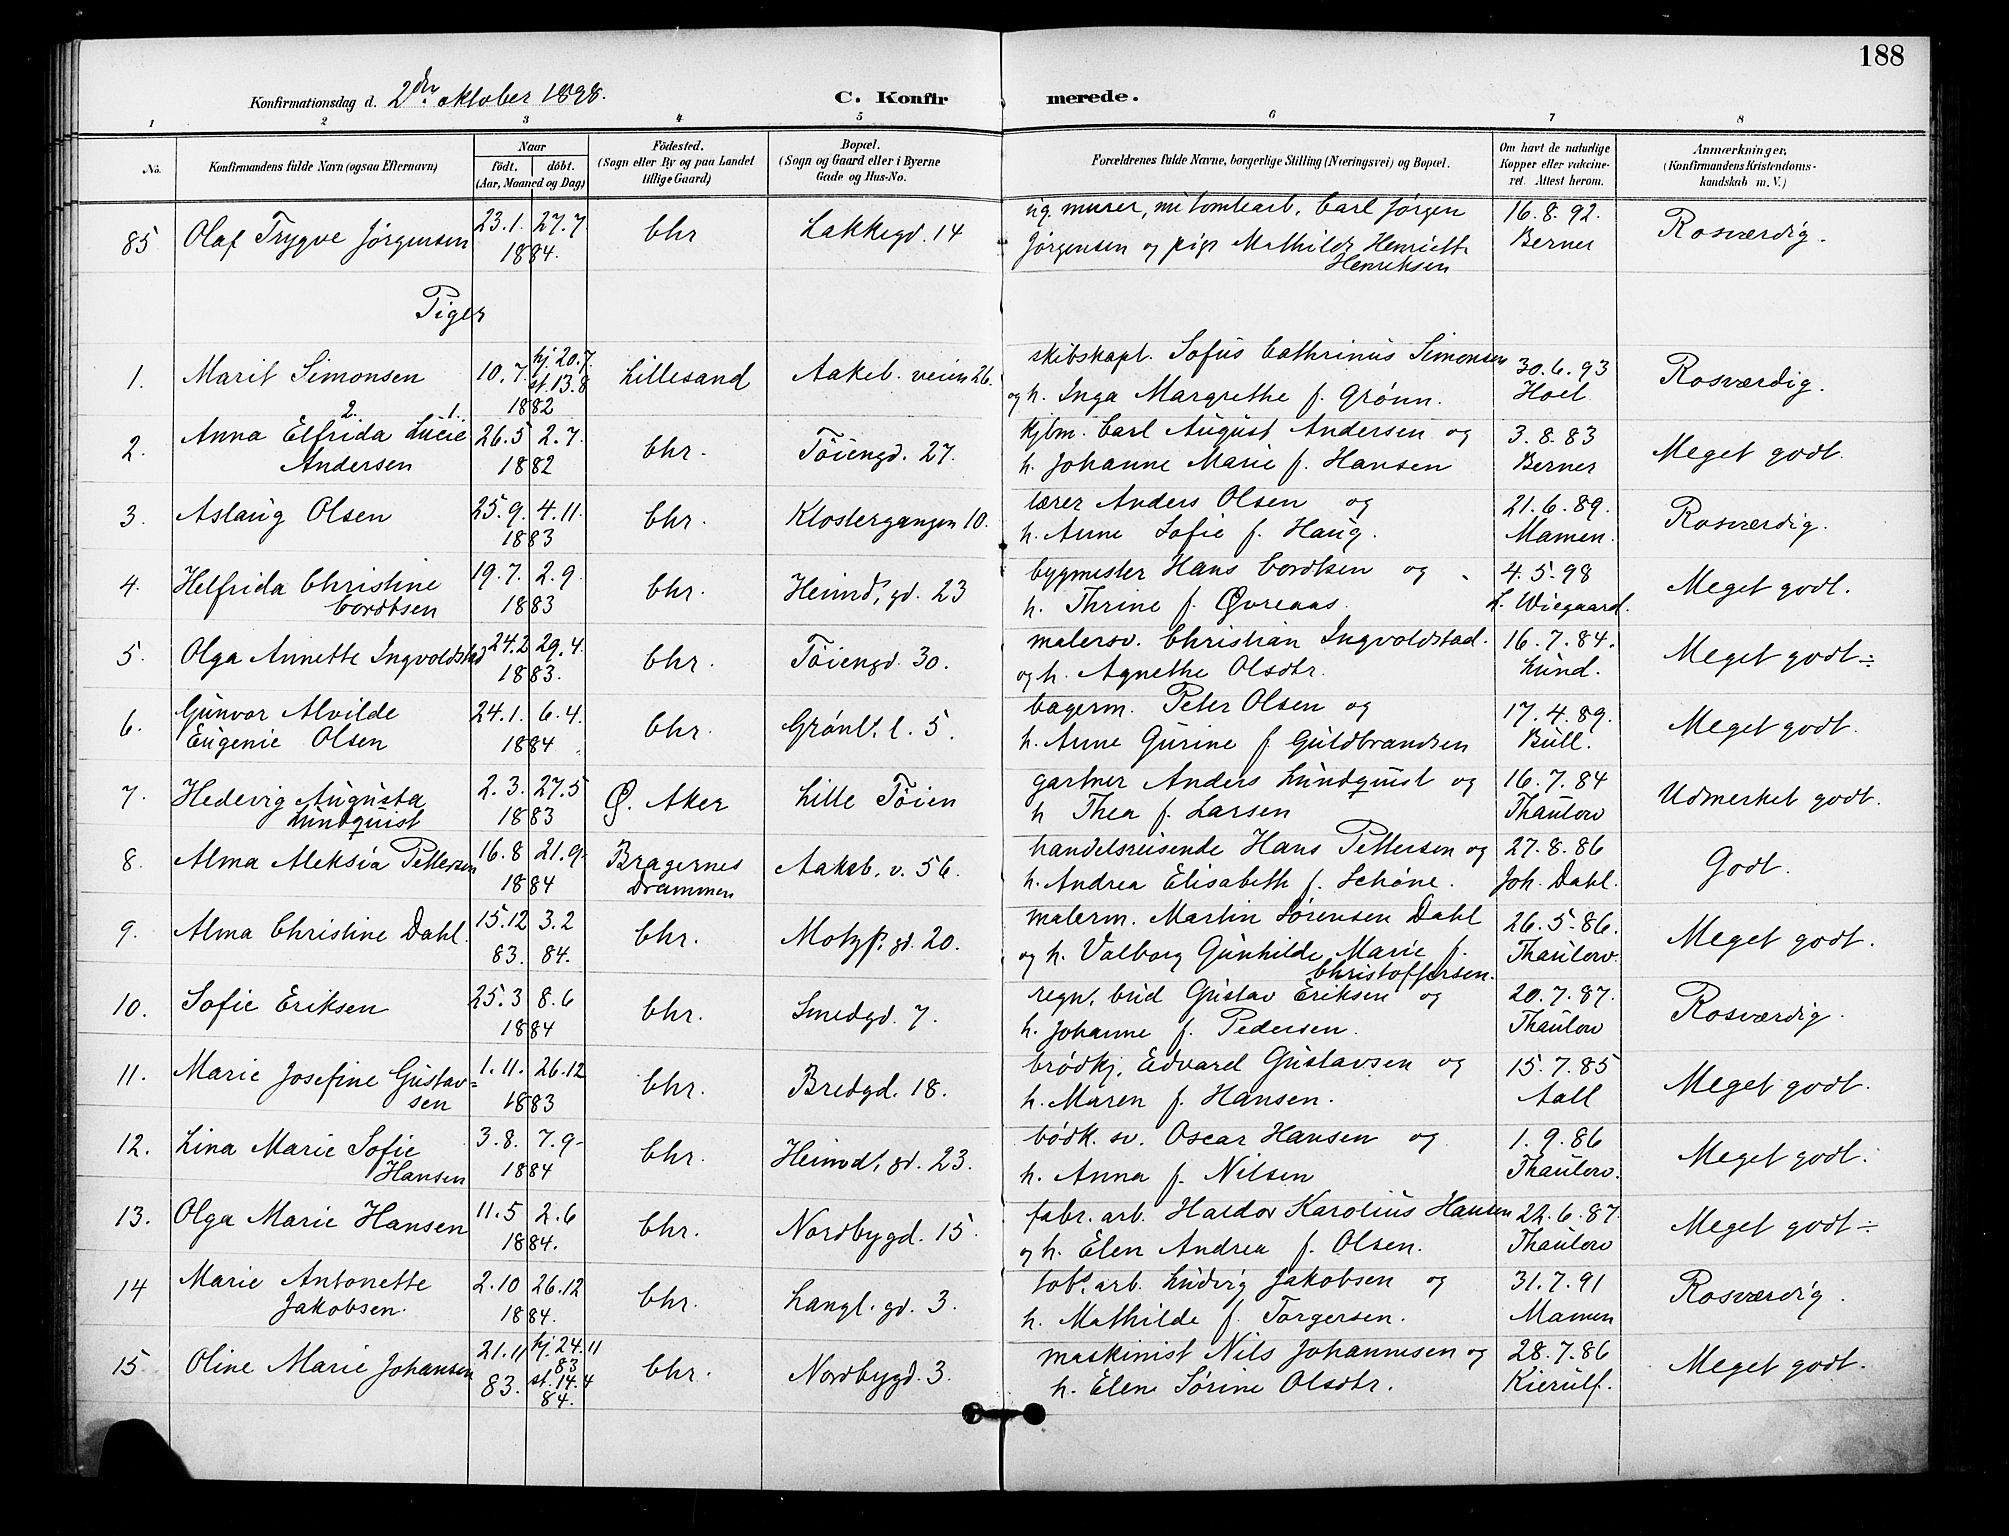 188
Konfirmationsdag d. 2den oktober 1898.
C. Konfirmerede.
1 2 3 4 5 6 7 8
No.
Konfirmandens fulde Navn (ogsaa Efternavn)
Naar
födt. döbt.
(Aar, Maaned og Dag)
Födested.
(Sogn eller By og paa Landet
tillige Gaard)
Bopæl.
(Sogn og Gaard eller i Byerne
Gade og Hus-No.
Forældrenes fulde Navne, borgerlige Stilling (Næringsvei) og Bopæl.
Om havt de naturlige
Kopper eller vakcine-
ret. Attest herom.
Anmærkninger,
(Konfirmandens Kristendoms-
kundskab m. V.)
85 Olaf Trygve Jørgensen 23.1. 27.7. 1884. Chr Lakkegd. 14
ug. murer, nu tomtearb. Carl Jørgen
Jørgensen og pige Mathilde Henriette
Henriksen
16.8.92. Berner Rosværdig.
Piger
1. Marit Simonsen 10.7. hj. 20.7. st. 13.8 1882 Lillesand Aakeb. veien 26.
skibskapt. Sofus Cathrinus Simonsen
og h. Inga Margrethe f. Grönn.
30.6.93 Hoel Rosværdig.
2. Anna Elfrida Lucie 2. 1.
Andersen 26.5 2.7. 1882 Chr. Töiengd. 27.
kjbm. Carl August Andersen og
h. Johanne Marie f. Hansen
3.8.83 Berner Meget godt.
3. Aslaug Olsen 25.9. 4.11. 1883 Chr. Klostergangen 10.
lærer Anders Olsen og
h. Anne Sofie f. Haug.
21.6.89. Mamen. Rosværdig.
4. Helfrida Christine
Cordtsen 19.7. 2.9. 1883 Chr. Heimd. gd. 23
bygmester Hans Cordtsen og
h. Thrine f. Øvreaas.
4.5.98 L. Wiegaard. Meget godt.
5. Olga Annette Ingvoldstad 24.2 29.4. 1883. Chr. Töiengd. 30.
malersv. Christian Ingvoldstad.
og h. Agnethe Olsdtr.
16.7.84. Lund. Meget godt÷
6. Gunvor Alvilde
Eugenie Olsen 24.1. 6.4. 1884. Chr. Grønl. l. 5.
bagerm. Peter Olsen og
h. Anne Gurine f. Guldbrandsen
17.4.89. Bull. Meget godt.
7. Hedevig Augusta
Lundquist 2.3. 27.5 1883 Ø. Aker Lille Töien
gartner Anders Lundquist og
h Thea f. Larsen
16.7.84 Thaulow Udmerket godt.
8. Alma Aleksia Pettersen 16.8 21.9. 1884 Bragernes
Drammen Aakeb. v. 56.
handelsreisende Hans Pettersen og
h. Andrea Elisabeth f. Schöne.
27.8.86 Joh. Dahl. Godt.
9. Alma Christine Dahl. 15.12 3.2 83. 84. Chr. Motzf. gd. 20.
malerm. Martin Sørensen Dahl
og h. Valborg Gunhilde Marie f.
Christoffersen.
26.5.86. Thaulow. Meget godt.
10. Sofie Eriksen 25.3 8.6 1884 Chr. Smedgd. 7.
regn. bud Gustav Eriksen og
h. Johanne f. Pedersen.
20.7.87. Thaulow Rosværdig.
11. Marie Josefine Gustav=
sen 1.11. 26.12 1883 Chr. Bredgd. 18.
brödkj. Edvard Gustavsen og
h. Maren f. Hansen.
15.7.85 Aall Meget godt.
12. Lina Marie Sofie
Hansen 3.8. 7.9- 1884 Chr. Heimd. gd. 23.
bödk. sv. Oscar Hansen og
h. Anna f. Nilsen
1.9.86 Thaulow. Meget godt.
13. Olga Marie Hansen 11.5 2.6 1884. Chr. Nordbygd. 15.
fabr. arb. Haldor Karolius Hansen
og h. Elen Andrea f. Olsen.
22.6.87. Thaulow Meget godt÷
14 Marie Antonette
Jakobsen. 2.10 26.12 1884. Chr. Langl. gd. 3.
tob. arb. Ludvig Jakobsen og
h. Mathilde f. Torgersen.
31.7.91 Mamen Rosværdig.
15 Oline Marie Johansen 21.11 83. hj. 24.11 83 st. 14.4 84. Chr. Nordbygd. 3.
maskinist Nils Johannesen og
h. Elen Sörine Olsdtr.
28.7.86 Kierulf. Meget godt.